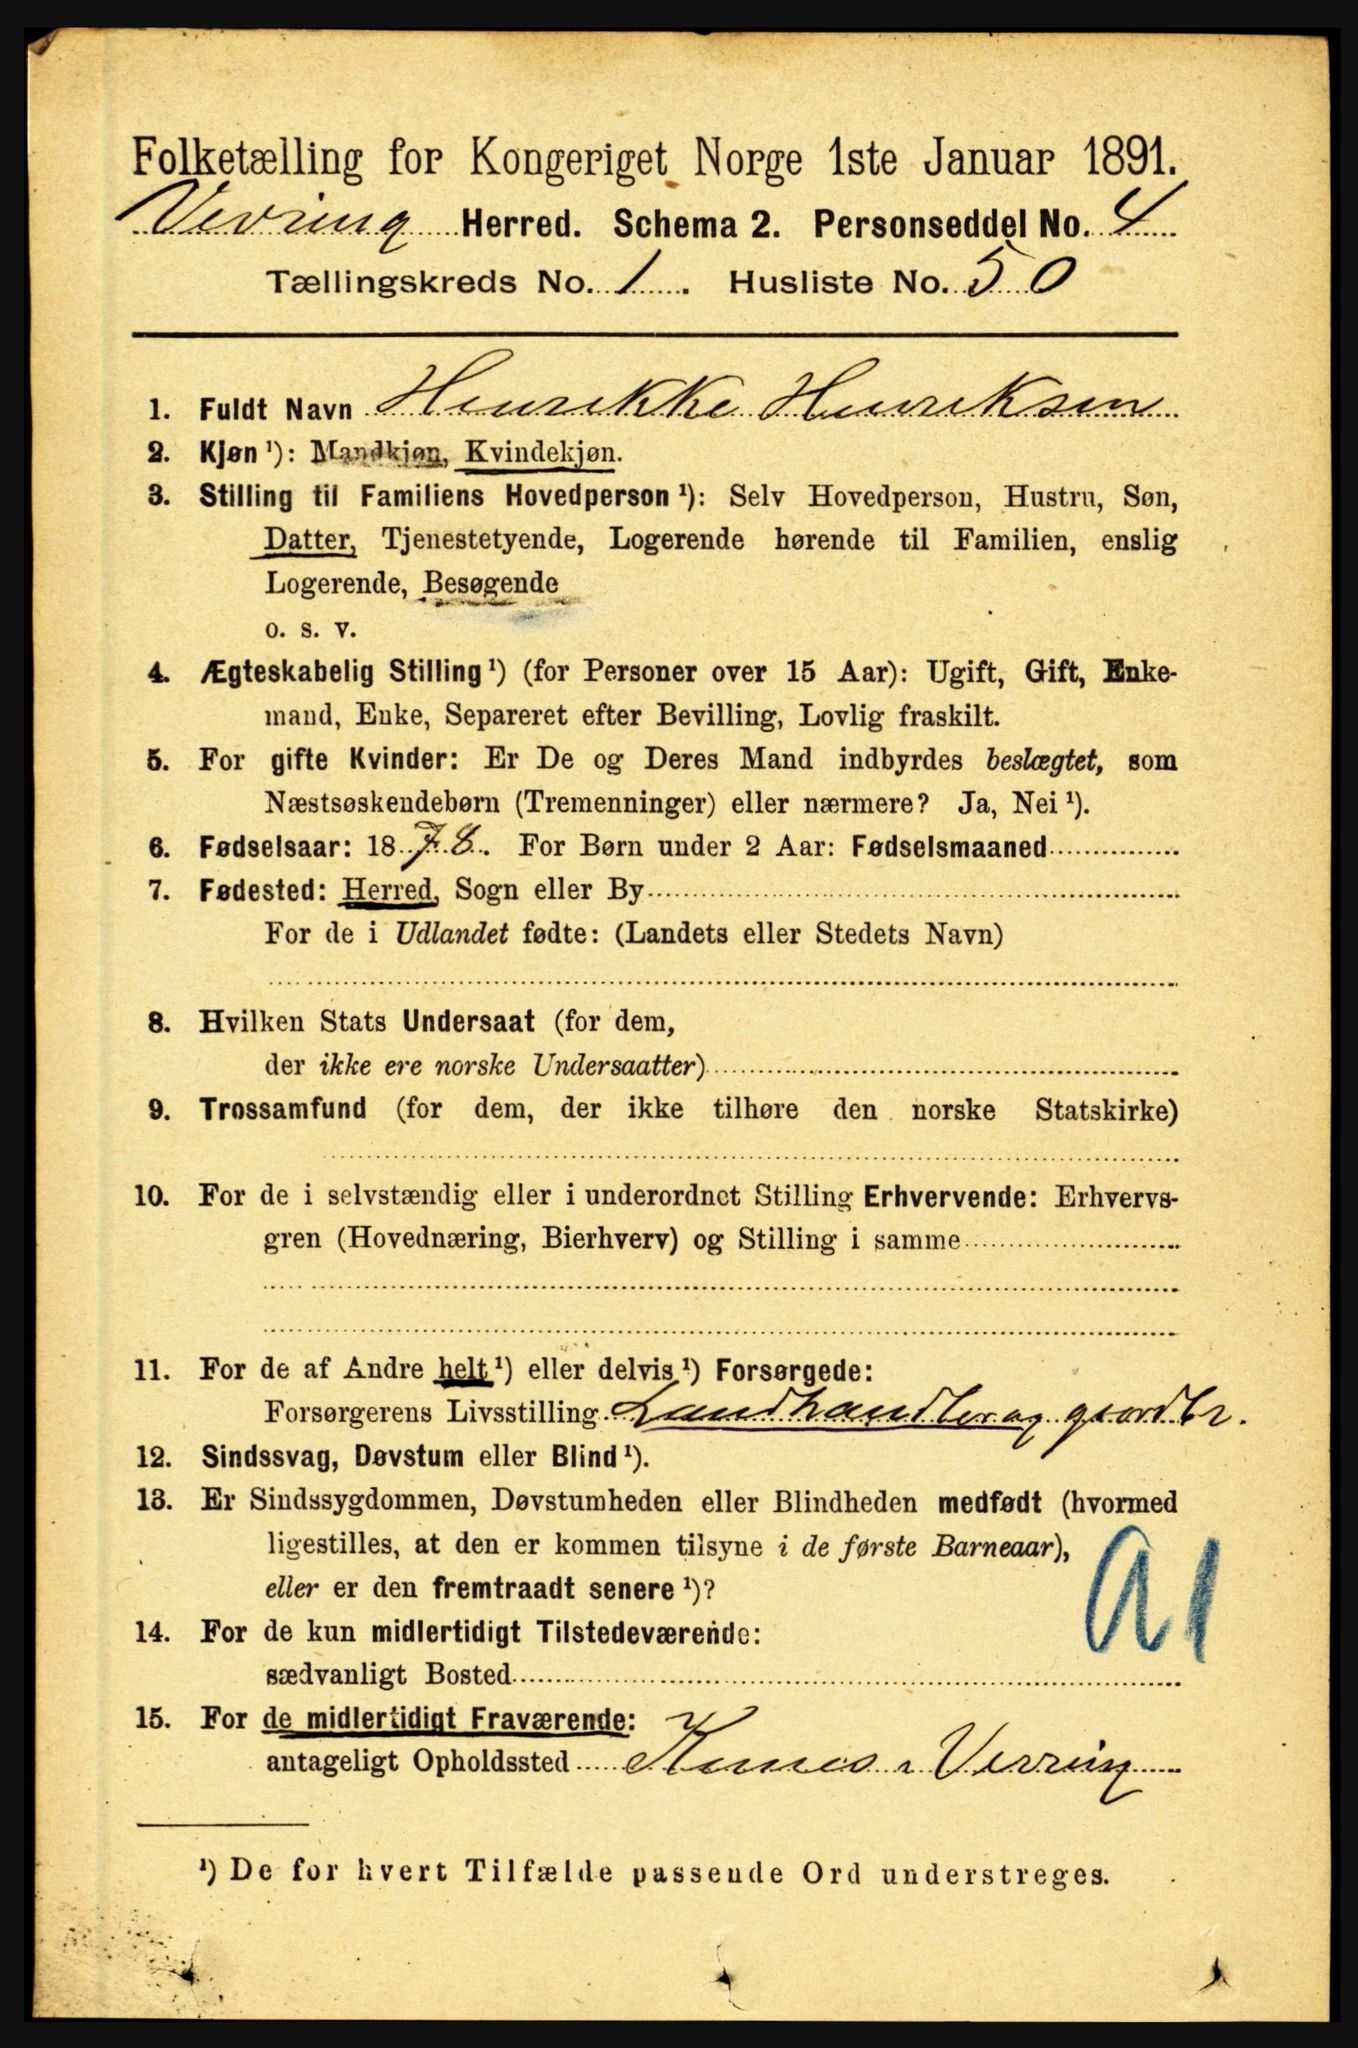 Folketælling for Kongeriget Norge 1ste Januar 1891.
Vevring Herred. Schema 2. Personseddel No. 4
Tællingskreds No. 1. Husliste No. 50
1. Fuldt Navn Henrikke Henriksen
2. Kjøn ¹): Mandkjøn, Kvindekjøn.
3. Stilling til Familiens Hovedperson ¹): Selv Hovedperson, Hustru, Søn,
Datter, Tjenestetyende, Logerende hørende til Familien, enslig
Logerende, Besøgende
o. s. v.
4. Ægteskabelig Stilling ¹) (for Personer over 15 Aar): Ugift, Gift, Enke-
mand, Enke, Separeret efter Bevilling, Lovlig fraskilt.
5. For gifte Kvinder: Er De og Deres Mand indbyrdes beslægtet, som
Næstsøskendebørn (Tremenninger) eller nærmere? Ja, Nei ¹).
6. Fødselsaar: 1878. For Børn under 2 Aar: Fødselsmaaned
7. Fødested: Herred, Sogn eller By
For de i Udlandet fødte: (Landets eller Stedets Navn)
8. Hvilken Stats Undersaat (for dem,
der ikke ere norske Undersaatter)
9. Trossamfund (for dem, der ikke tilhøre den norske Statskirke)
10. For de i selvstændig eller i underordnet Stilling Erhvervende: Erhvervs-
gren (Hovednæring, Bierhverv) og Stilling i samme
11. For de af Andre helt ¹) eller delvis ¹) Forsørgede:
Forsørgerens Livsstilling Landhandler og gaardbr.
12. Sindssvag, Døvstum eller Blind ¹).
13. Er Sindssygdommen, Døvstumheden eller Blindheden medfødt (hvormed
ligestilles, at den er kommen tilsyne i de første Barneaar),
eller er den fremtraadt senere ¹)?
a1
14. For de kun midlertidigt Tilstedeværende:
sædvanligt Bosted
15. For de midlertidigt Fraværende:
antageligt Opholdssted i Vevring
¹) De for hvert Tilfælde passende Ord understreges.